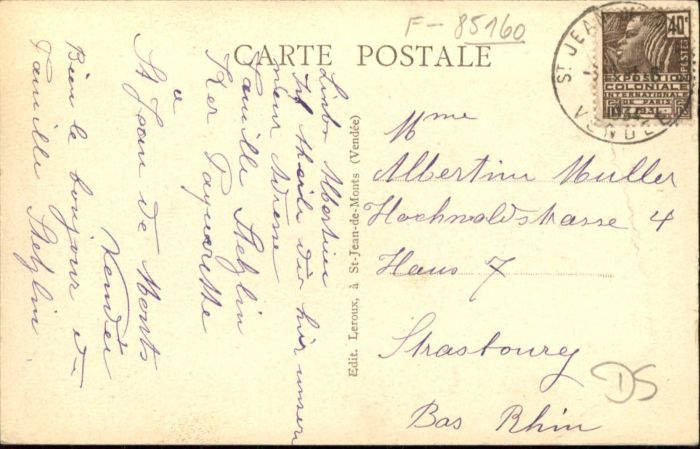 F - 85160
CARTE POSTALE
40c
POSTES
EXPOSITION
COLONIALE
INTERNATIONALE
DE PARIS
1931
ST JEAN
VENDEE
Liebe Albertine
Ich theile dir hir unsern
neuir Adresse
Familie Stehlin
Ker Paquerette
a
St Jean de Monts
Vendée
Bien le bonjour d-
Famille Stehlin
Edit. Leroux, à St-Jean-de-Monts (Vendée)
Mme
Albertine Muller
Hochwaldstrasse 4
Haus 7
Strasbourg
Bas Rhin
DS